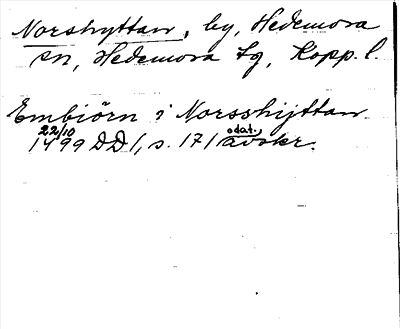 Norshyttan, by, Hedemora
sn, Hedemora tg, Kopp. l.
Embiörn i Norsshijttan
22/10 odat.,
1499 DD 1, s. 171 avskr.